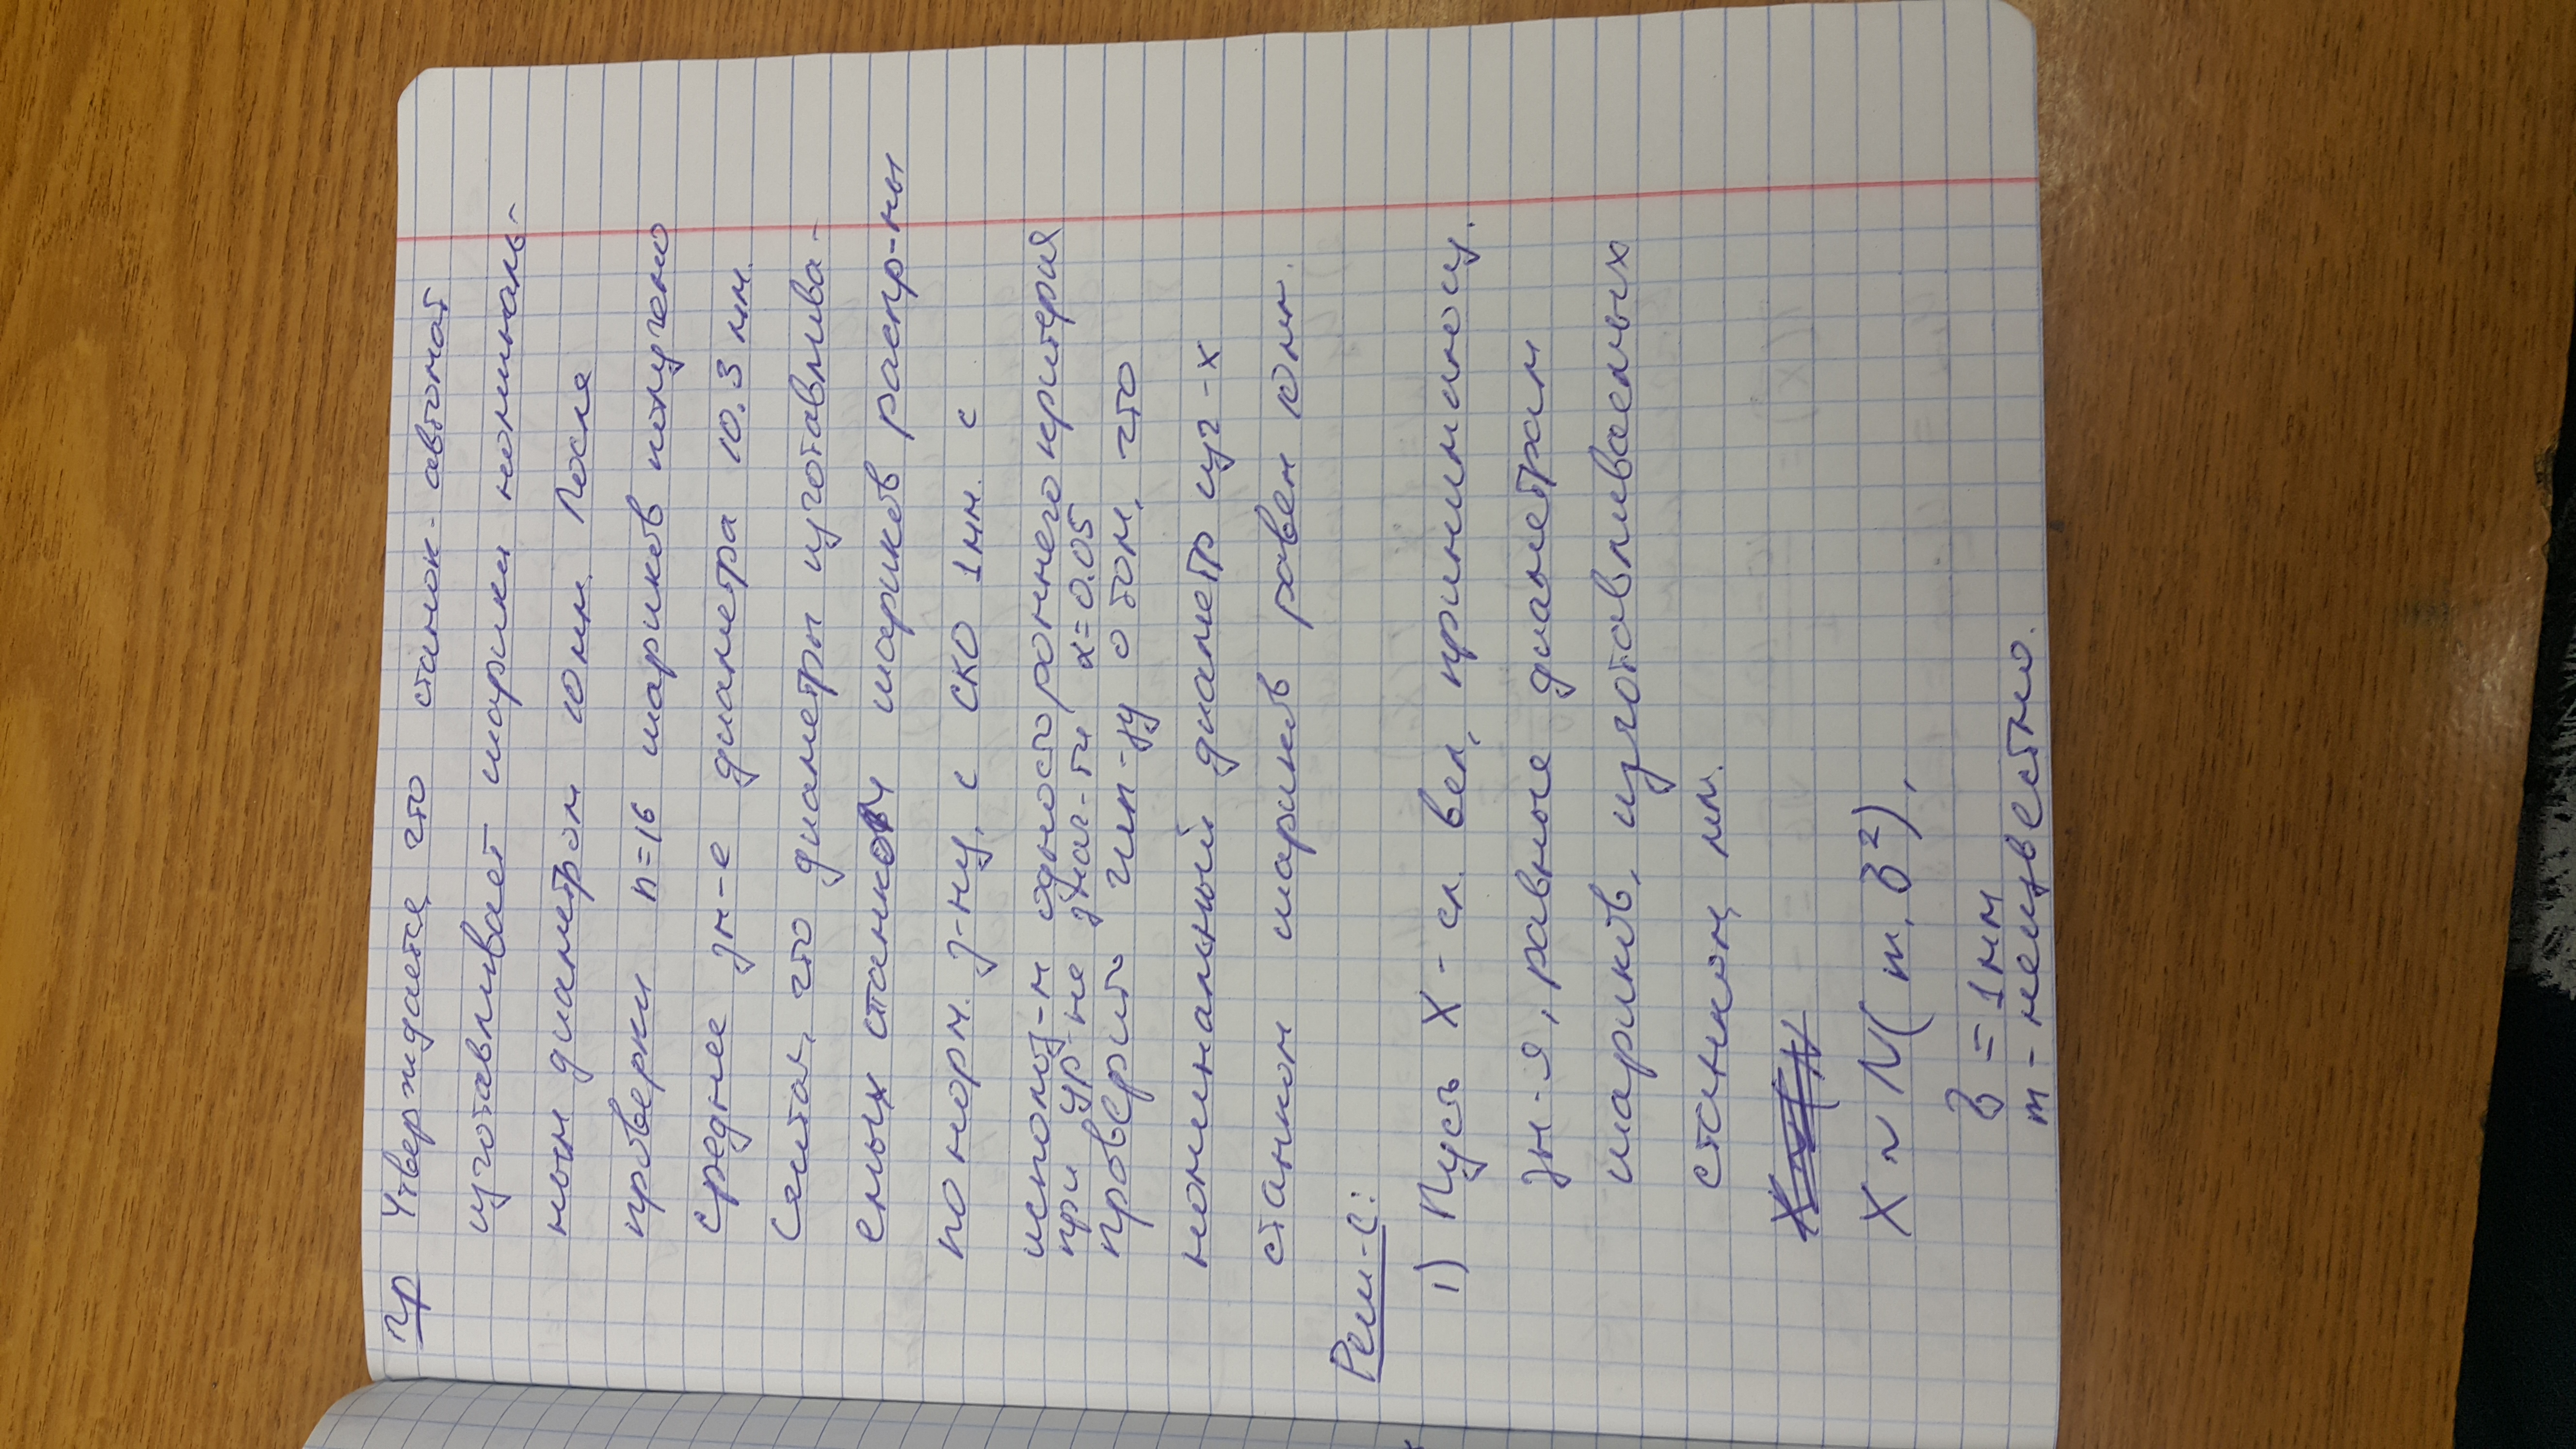 Пр Утверждается, что станок-автомат
изготавливает шарики номиналь-
ным диаметром 10 мм. После
проверки n=16 шариков получено
среднее зн-е диаметра 10.3 мм.
Считая, что диаметры изготавлива-
емых станком шариков распр-ны
по норм. з-ну, с СКО 1 мм. с
использ-м одностороннего критерия
при ур-не знач-ти α=0.05
проверить гип-зу о том, что
номинальный диаметр изг-х
станком шариков равен 10 мм.
Реш-е:
1) Пусть X - сл. вел, принимающ.
зн-я, равные диаметрам
шариков, изготавливаемых
станком, мм.
X ~ (N
X ~ N( m, σ²),
σ = 1 мм
m - неизвестно.